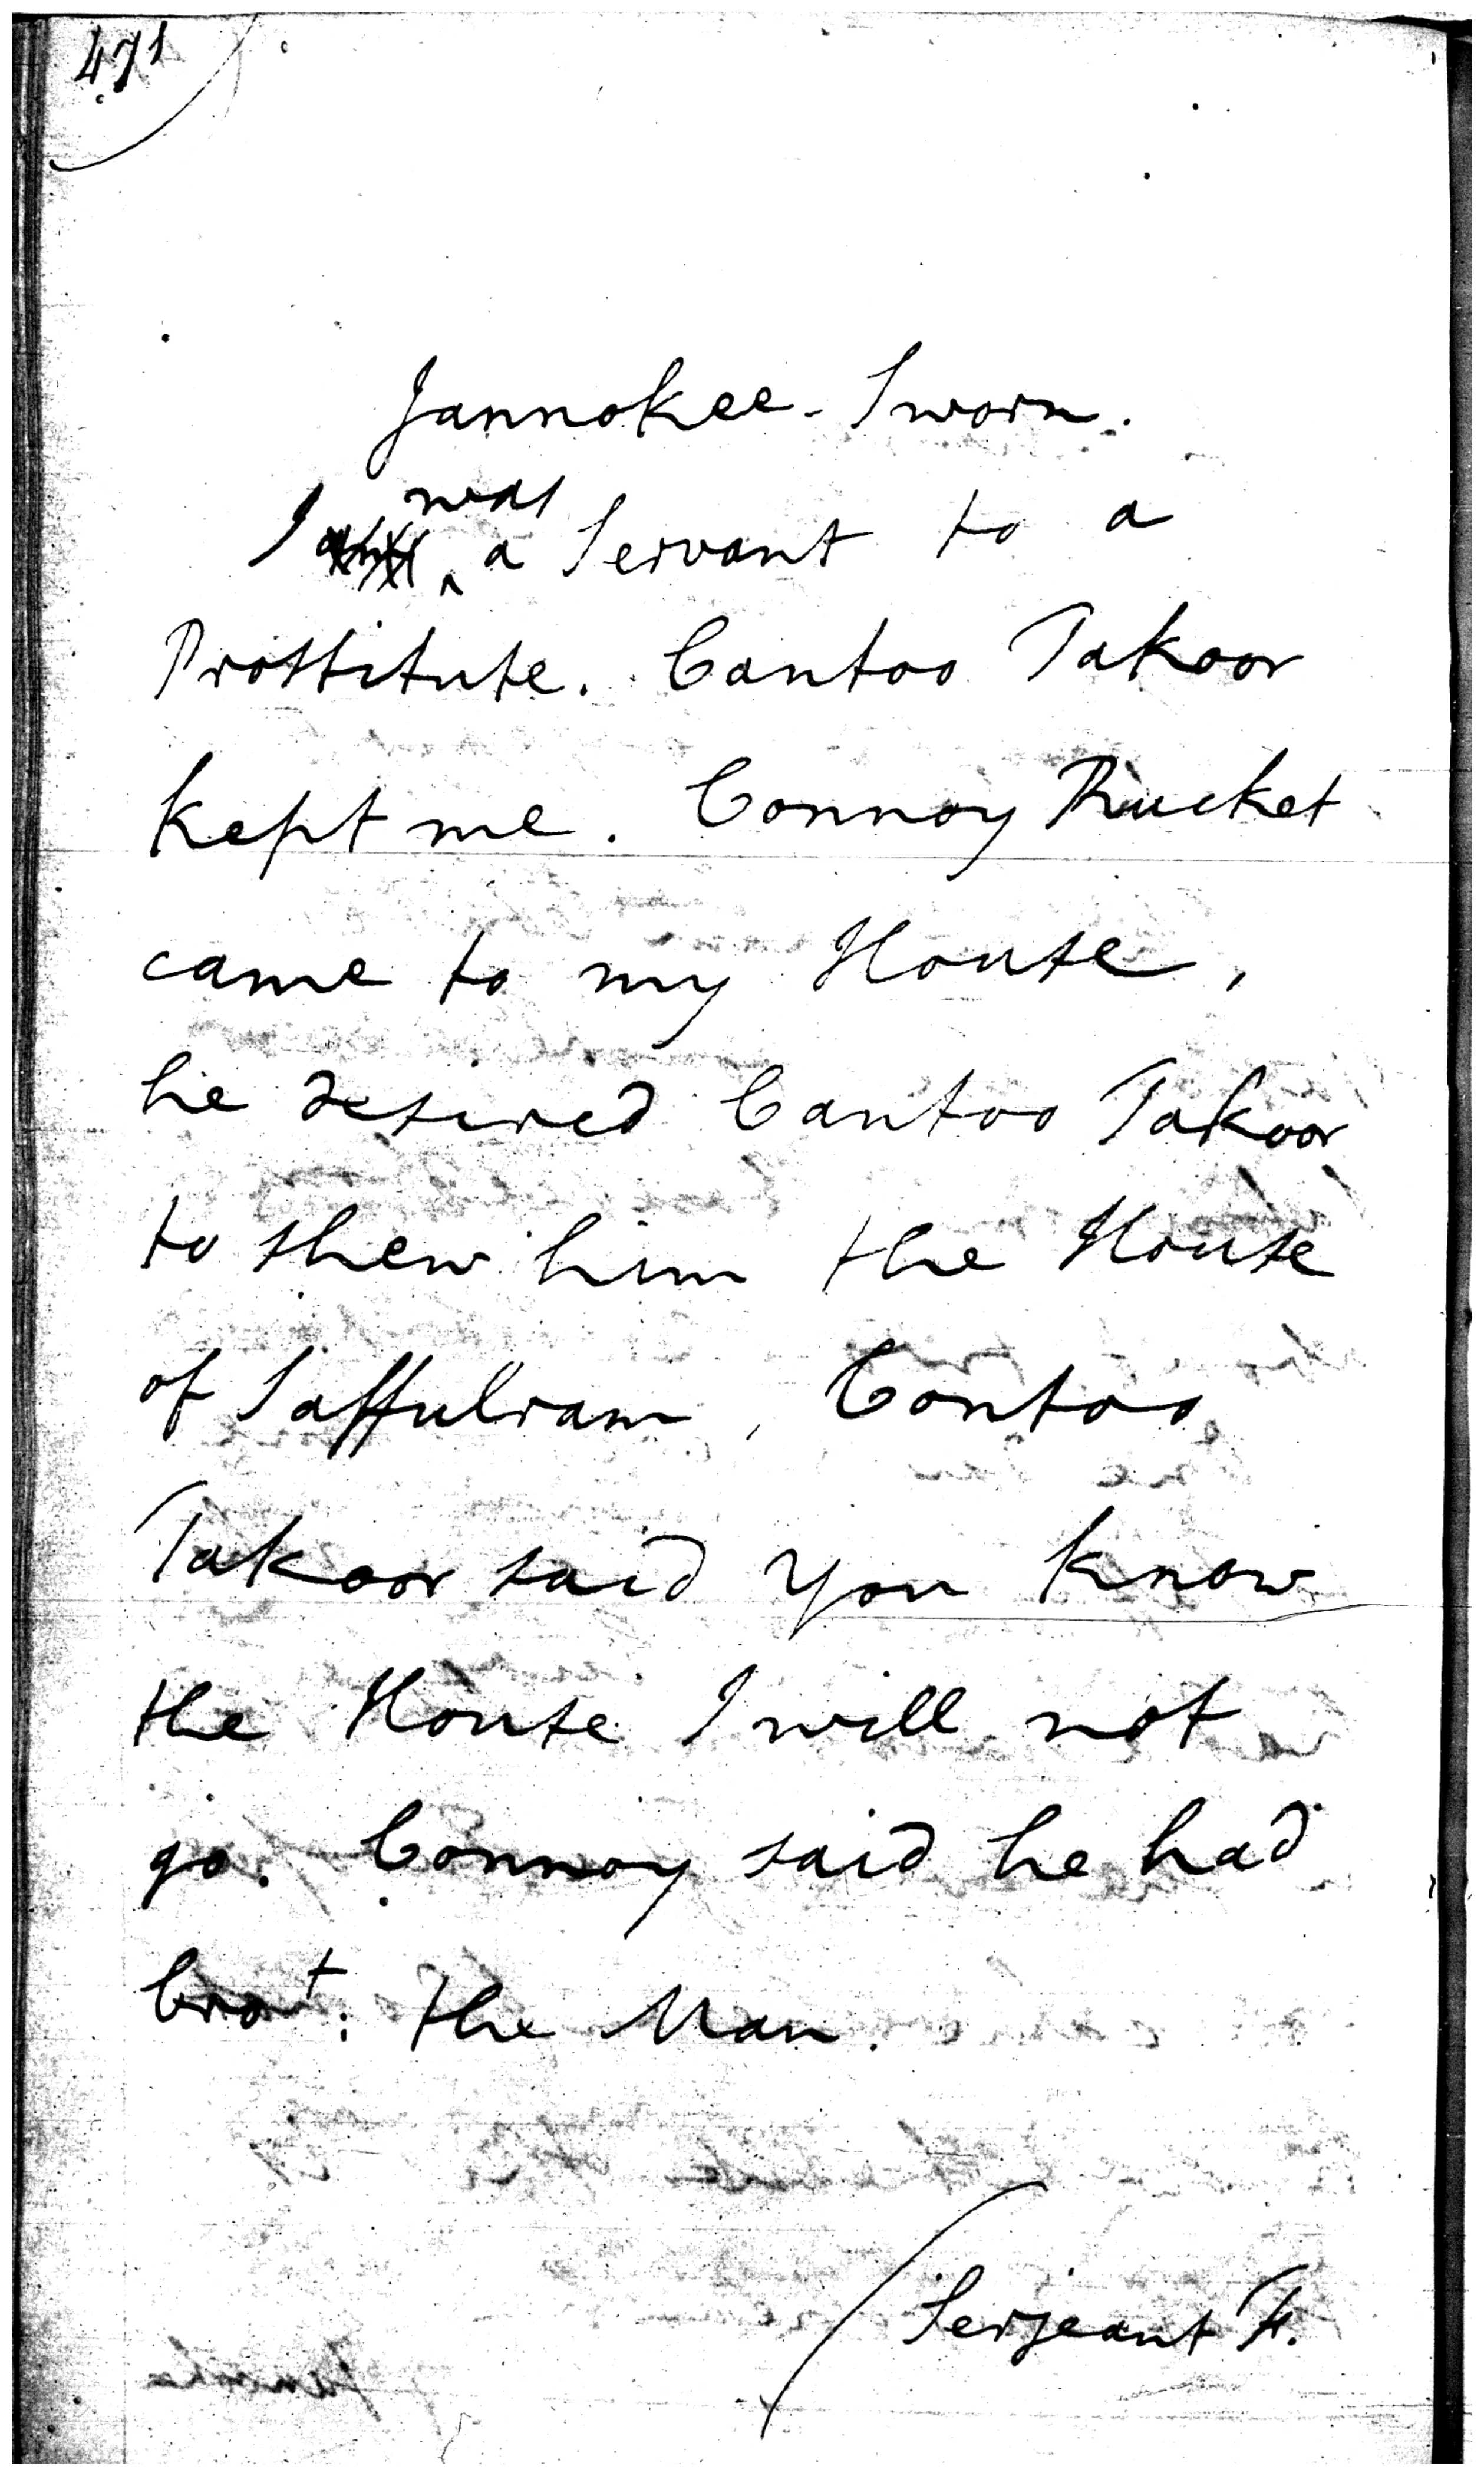 471
Jannokee - Sworn.
was
I a Servant to a
Prostitute. Cantoo Takoor
kept me. Connoy Rucket
came to my House,
he desired Cantoo Takoor
to shew him the House
of Saffulram, Contoo
Takoor said you know
the House I will not
go. Connoy said he had
bro^t: the Man.
Serjeant F.